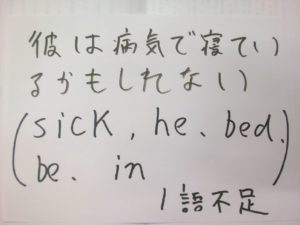 彼は病気で寝てい
るかもしれない
(sick, he、bed、
be、in)
1語不足